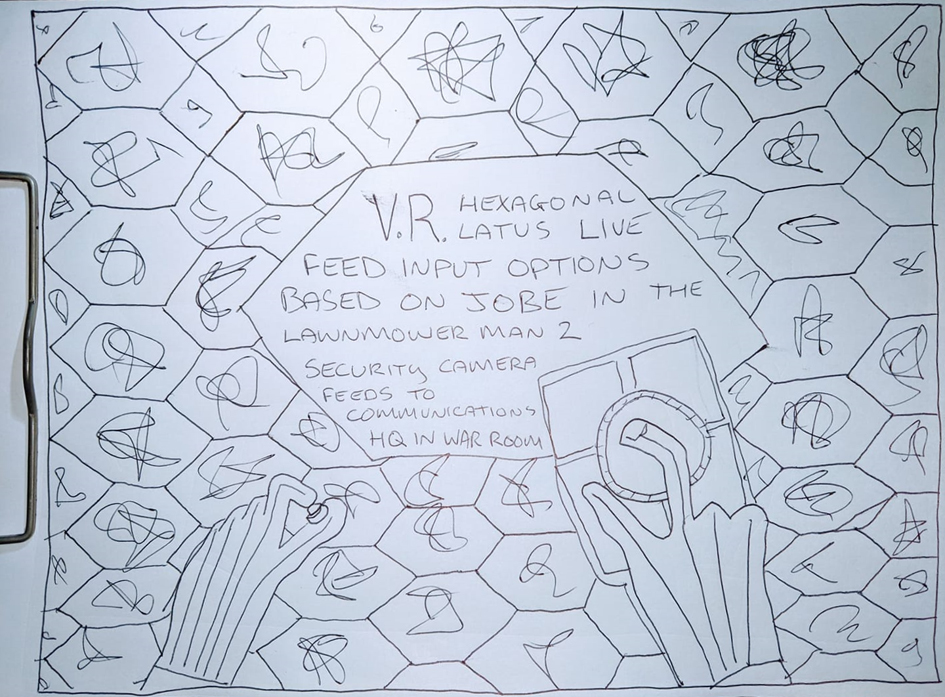 V.R. HEXAGONAL
LATUS LIVE
FEED INPUT OPTIONS
BASED ON JOBE IN THE
LAWNMOWER MAN 2
SECURITY CAMERA
FEEDS TO
COMMUNICATIONS
HQ IN WAR ROOM